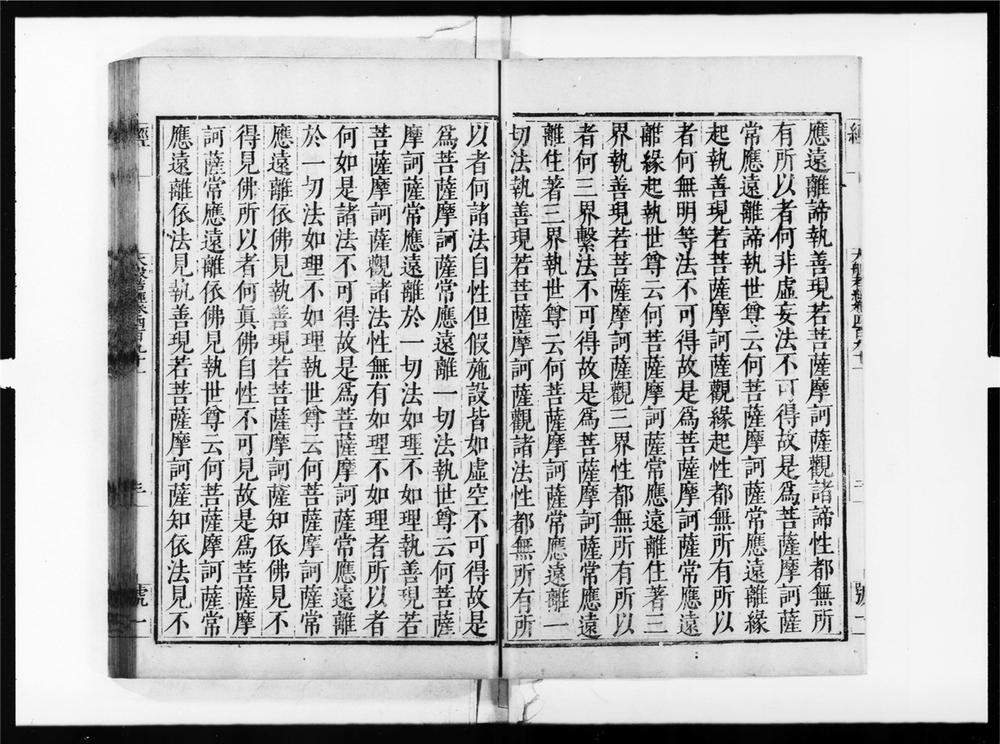 應遠離諦執善現若菩薩摩訶薩觀諸諦性都無所
有所以者何非虛妄法不可得故是爲菩薩摩訶薩
常應遠離諦執世尊云何菩薩摩訶薩常應遠離緣
起執善現若菩薩摩訶薩觀緣起性都無所有所以
者何無明等法不可得故是爲菩薩摩訶薩常應遠
離緣起執世尊云何菩薩摩訶薩常應遠離住著三
界執善現若菩薩摩訶薩觀三界性都無所有所以
者何三界繫法不可得故是爲菩薩摩訶薩常應遠
離住著三界執世尊云何菩薩摩訶薩常應遠離一
切法執善現若菩薩摩訶薩觀諸法性都無所有所
以者何諸法自性但假施設皆如虛空不可得故是
爲菩薩摩訶薩常應遠離一切法執世尊云何菩薩
摩訶薩常應遠離於一切法如理不如理執善現若
菩薩摩訶薩觀諸法性無有如理不如理者所以者
何如是諸法不可得故是爲菩薩摩訶薩常應遠離
於一切法如理不如理執世尊云何菩薩摩訶薩常
應遠離依佛見執善現若菩薩摩訶薩知依佛見不
得見佛所以者何真佛自性不可見故是爲菩薩摩
訶薩常應遠離依佛見執世尊云何菩薩摩訶薩常
應遠離依法見執善現若菩薩摩訶薩知依法見不
經
大般若經卷四百九十一
三
號一